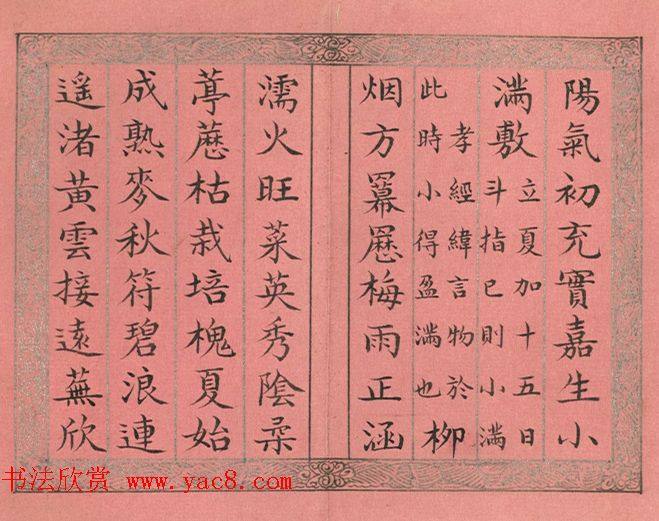 陽氣初充實嘉生小
滿敷
立夏加十五日
斗指巳則小滿
孝經緯言物於
此時小得盈滿也
柳
烟方羃䍥梅雨正涵
濡火旺菜英秀陰柔
葶藶枯栽培槐夏始
成熟麥秋符碧浪連
遥渚黃雲接遠蕪欣
书法欣赏 www.yac8.com